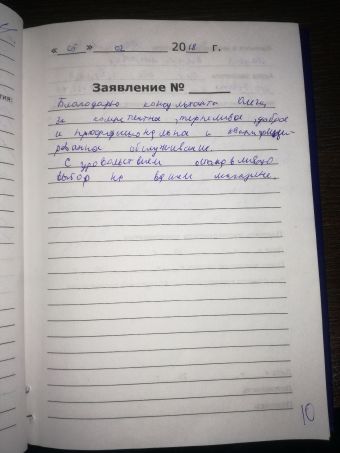 « 05 » 02 2018 г.
Заявление №
Благодарю консультанта Олега,
за компетентное, терпеливое, доброе
и профессиональное и квалифици-
рованное обслуживание.
С удовольствием останавливаю
выбор на вашем магазине.
10